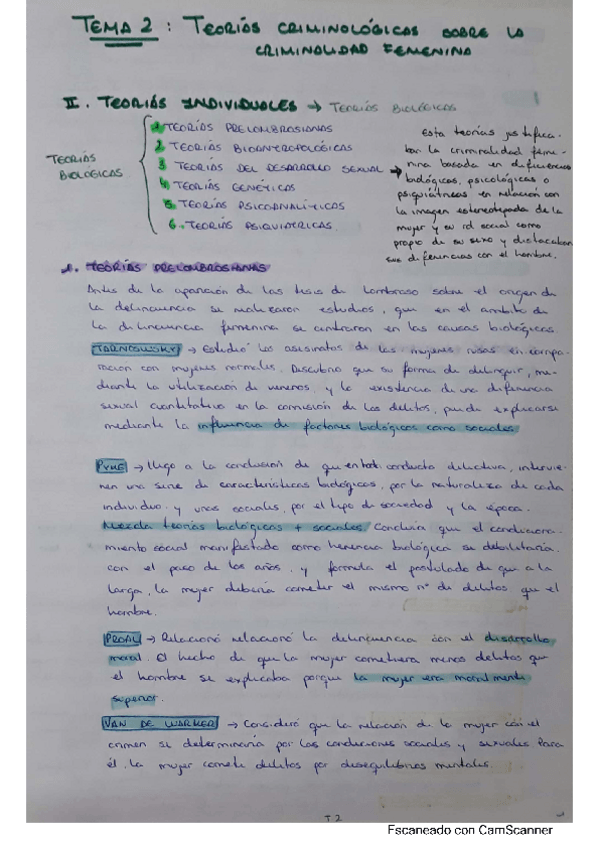 TEMA 2 : TEORÍAS CRIMINOLÓGICAS SOBRE LA
CRIMINALIDAD FEMENINA
II. TEORÍAS INDIVIDUALES → TEORÍAS BIOLÓGICAS
TEORÍAS
BIOLÓGICAS
1. TEORÍAS PRELOMBROSIANAS
2. TEORÍAS BIOANTROPOLÓGICAS
3. TEORÍAS DEL DESARROLLO SEXUAL
4. TEORÍAS GENÉTICAS
5. TEORÍAS PSICOANALÍTICAS
6. TEORÍAS PSIQUIÁTRICAS.
Esta teorías justifica-
ban la criminalidad feme-
nina basada en diferencias
biológicas, psicológicas o
psiquiátricas en relación con
la imagen estereotipada de la
mujer y su rol social como
propio de su sexo y destacaban
sus diferencias con el hombre.
1. TEORÍAS PRELOMBROSIANAS
Antes de la aparición de las tesis de Lombroso sobre el origen de
la delincuencia se realizaron estudios, que en el ámbito de
la delincuencia femenina se centraron en las causas biológicas.
TARNOWSKY → Estudió los asesinatos de las mujeres rusas en compa-
ración con mujeres normales. Descubrió que su forma de delinquir, me-
diante la utilización de venenos, y la existencia de una diferencia
sexual cuantitativa en la comisión de los delitos, puede explicarse
mediante la influencia de factores biológicos como sociales.
→ llegó a la conclusión de que en toda conducta delictiva, intervie-
nen una serie de características biológicas, por la naturaleza de cada
individuo, y unas sociales, por el tipo de sociedad y la época.
Mezcla teorías biológicas + sociales. Concluía que el condiciona-
miento social manifestado como herencia biológica se debilitaría
con el paso de los años, y formula el postulado de que a la
larga, la mujer debería cometer el mismo nº de delitos que el
hombre.
PROAL → Relacionó relacionó la delincuencia con el desarrollo
moral. El hecho de que la mujer cometiera menos delitos que
el hombre se explicaba porque la mujer era moralmente
superior.
VAN DE WARKER → Consideró que la relación de la mujer con el
crimen se determinaría por las condiciones sociales y sexuales. Para
él, la mujer comete delitos por desequilibrios mentales.
T.2
Escaneado con CamScanner